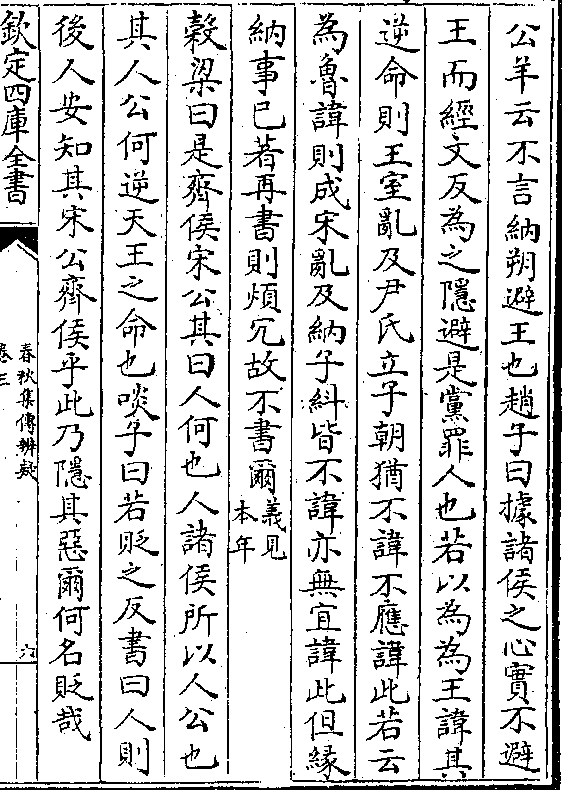 公羊云不言納朔避王也趙子曰據諸侯之心實不避
王而經文反為之隱避是黨罪人也若以為為王諱其
逆命則王室亂及尹氏立子朝猶不諱不應諱此若云
為魯諱則成宋亂及納子糾皆不諱亦無宜諱此但緣
納事已著再書則煩冗故不書爾義見本年
穀梁曰是齊侯宋公其曰人何也人諸侯所以人公也
其人公何逆天王之命也啖子曰若貶之反書曰人則
後人安知其宋公齊侯乎此乃隱其惡爾何名貶哉
欽定四庫全書
春秋集傳辨疑
卷三
六